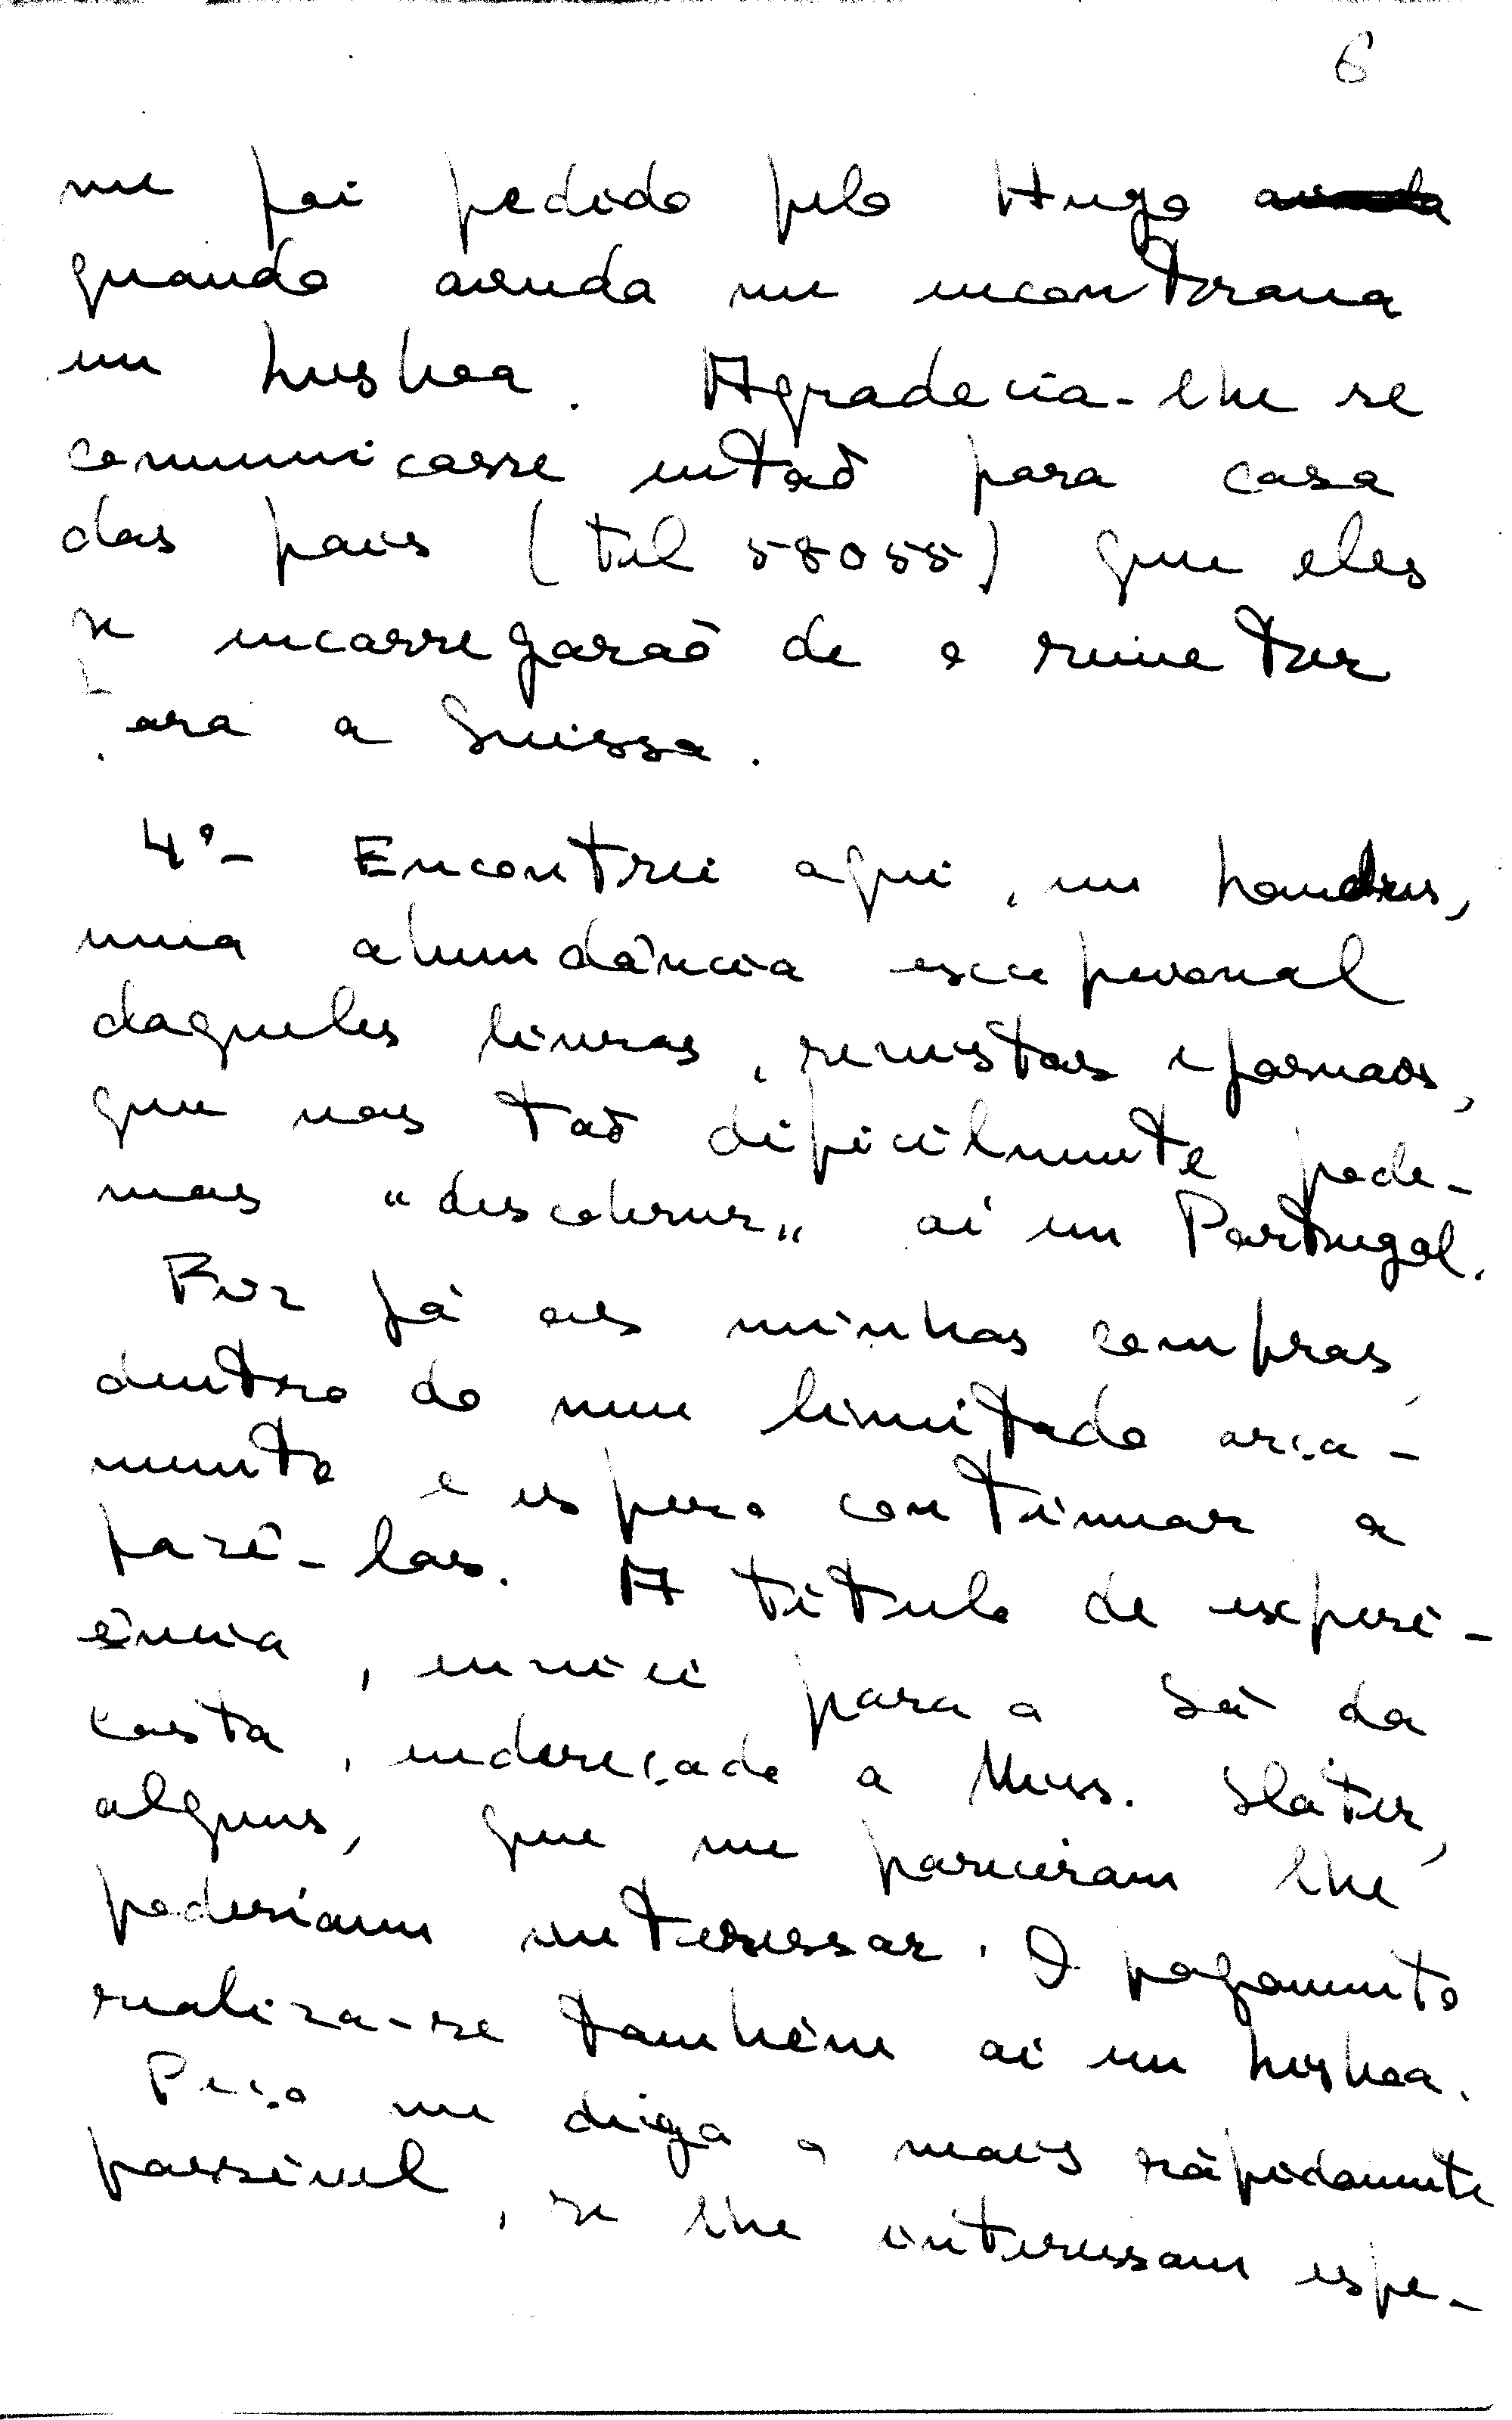 6
me foi pedido pelo Hugo ainda
quando ainda me encontrava
em Lisboa. Agradecia-lhe se
comunicasse então para casa
dos pais (tel 58055) que eles
se encarregarão de o remeter
para a Suissa.
4º- Encontrei aqui, em Londres,
uma abundância excepcional
daqueles livros, revistas e jornais,
que nós tão dificilmente pode-
mos "descobrir" aí em Portugal.
Fiz já as minhas compras,
dentro do meu limitado orça-
mento e espero continuar a
fazê-las. A título de experi-
ência, enviei para a Sá da
Costa, endereçado a Miss. Slater,
alguns, que me pareceram lhe
poderiam interessar. O pagamento
realiza-se também aí em Lisboa.
Peço me diga o mais ràpidamente
possível, se lhe interessam espe-